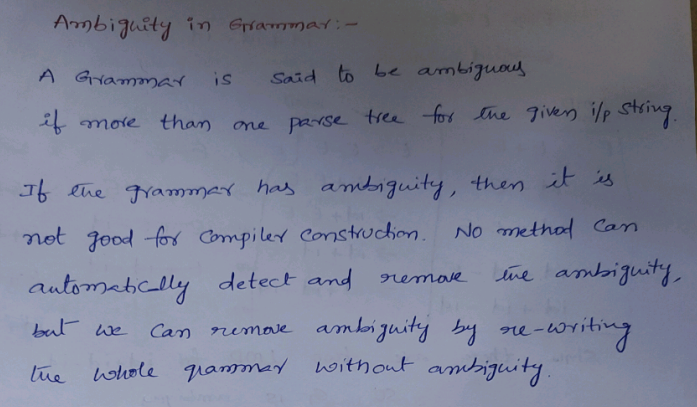 Ambiguity in Grammar:-
A Grammar is said to be ambiguous
if more than one parse tree for the given i/p string.
If the grammar has ambiguity, then it is
not good for compiler construction. No method can
automatically detect and remove the ambiguity,
but we can remove ambiguity by re-writing
the whole grammar without ambiguity.